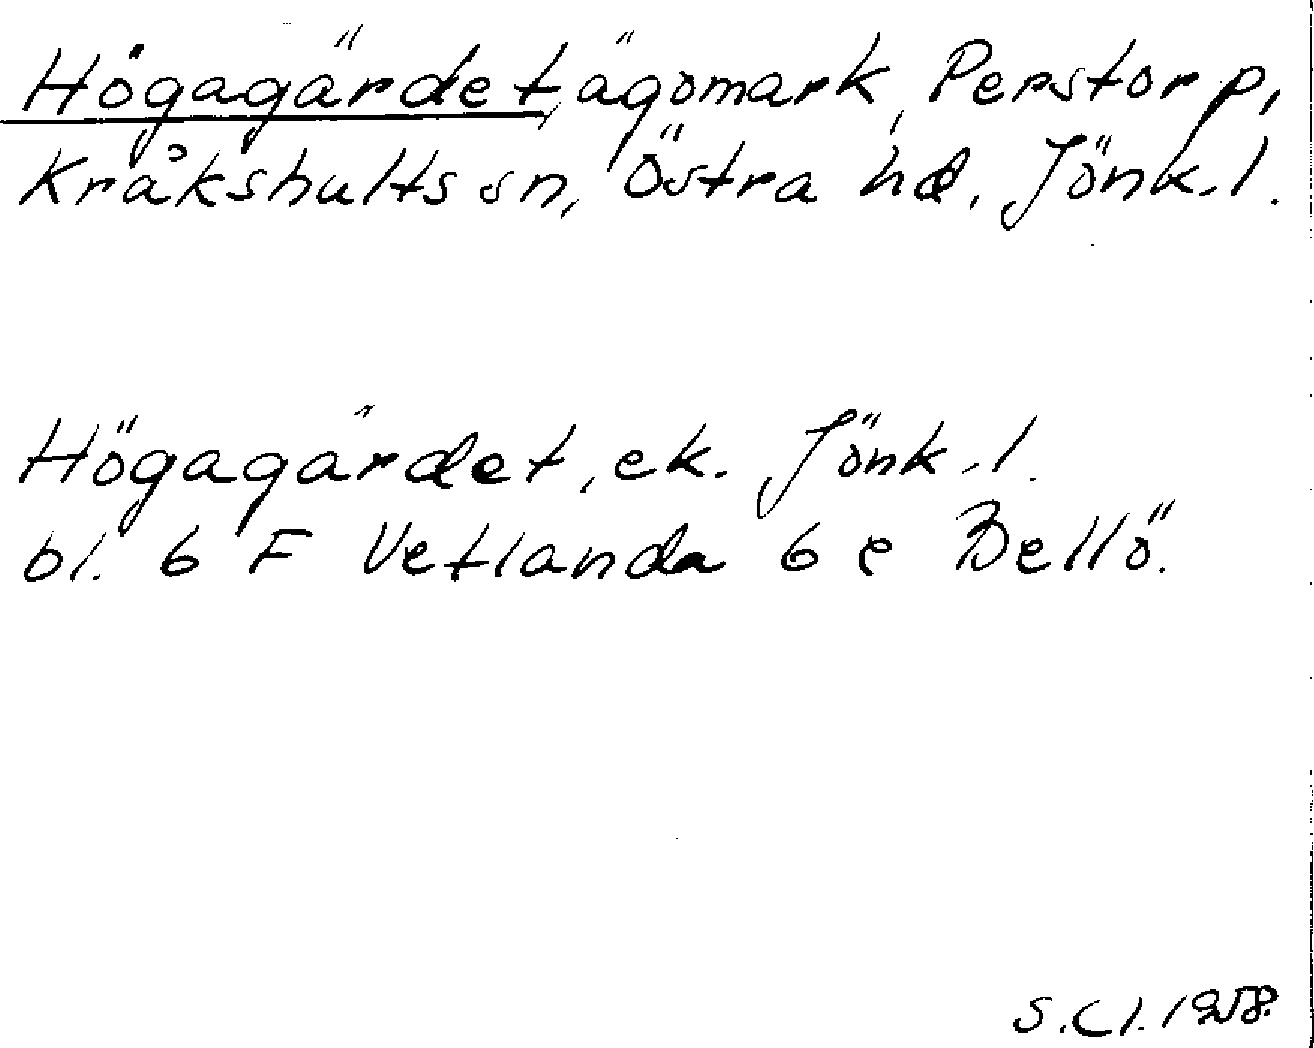 Högagärdet, ägomark, Perstorp,
Kråkshults sn, Östra hd, Jönk.l.
Högagärdet, ek. Jönk.l.
bl. 6 F Vetlanda 6 e Bellö.
S.Cl. 1958.